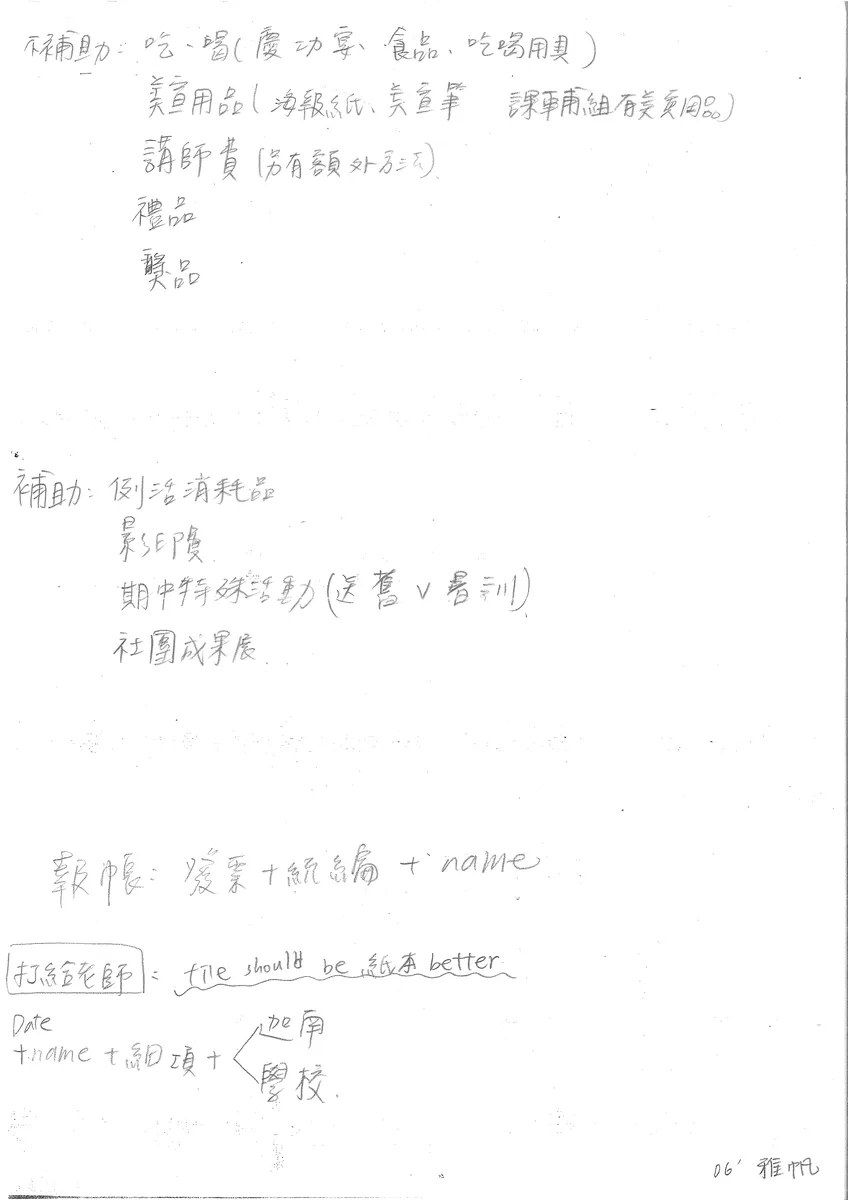 不補助: 吃、喝(慶功宴、食品、吃喝用具)
美宣用品(海報紙、美宣筆 課輔組有美宣用品)
講師費(另有額外方法)
禮品
獎品
補助: 例活消耗品
影印費
期中特殊活動(送舊 v 暑訓)
社團成果展
報帳: 發票+統編 + name
打給老師: file should be 紙本 better
Date
+name + 細項 +
迦南
學校
06' 雅帆